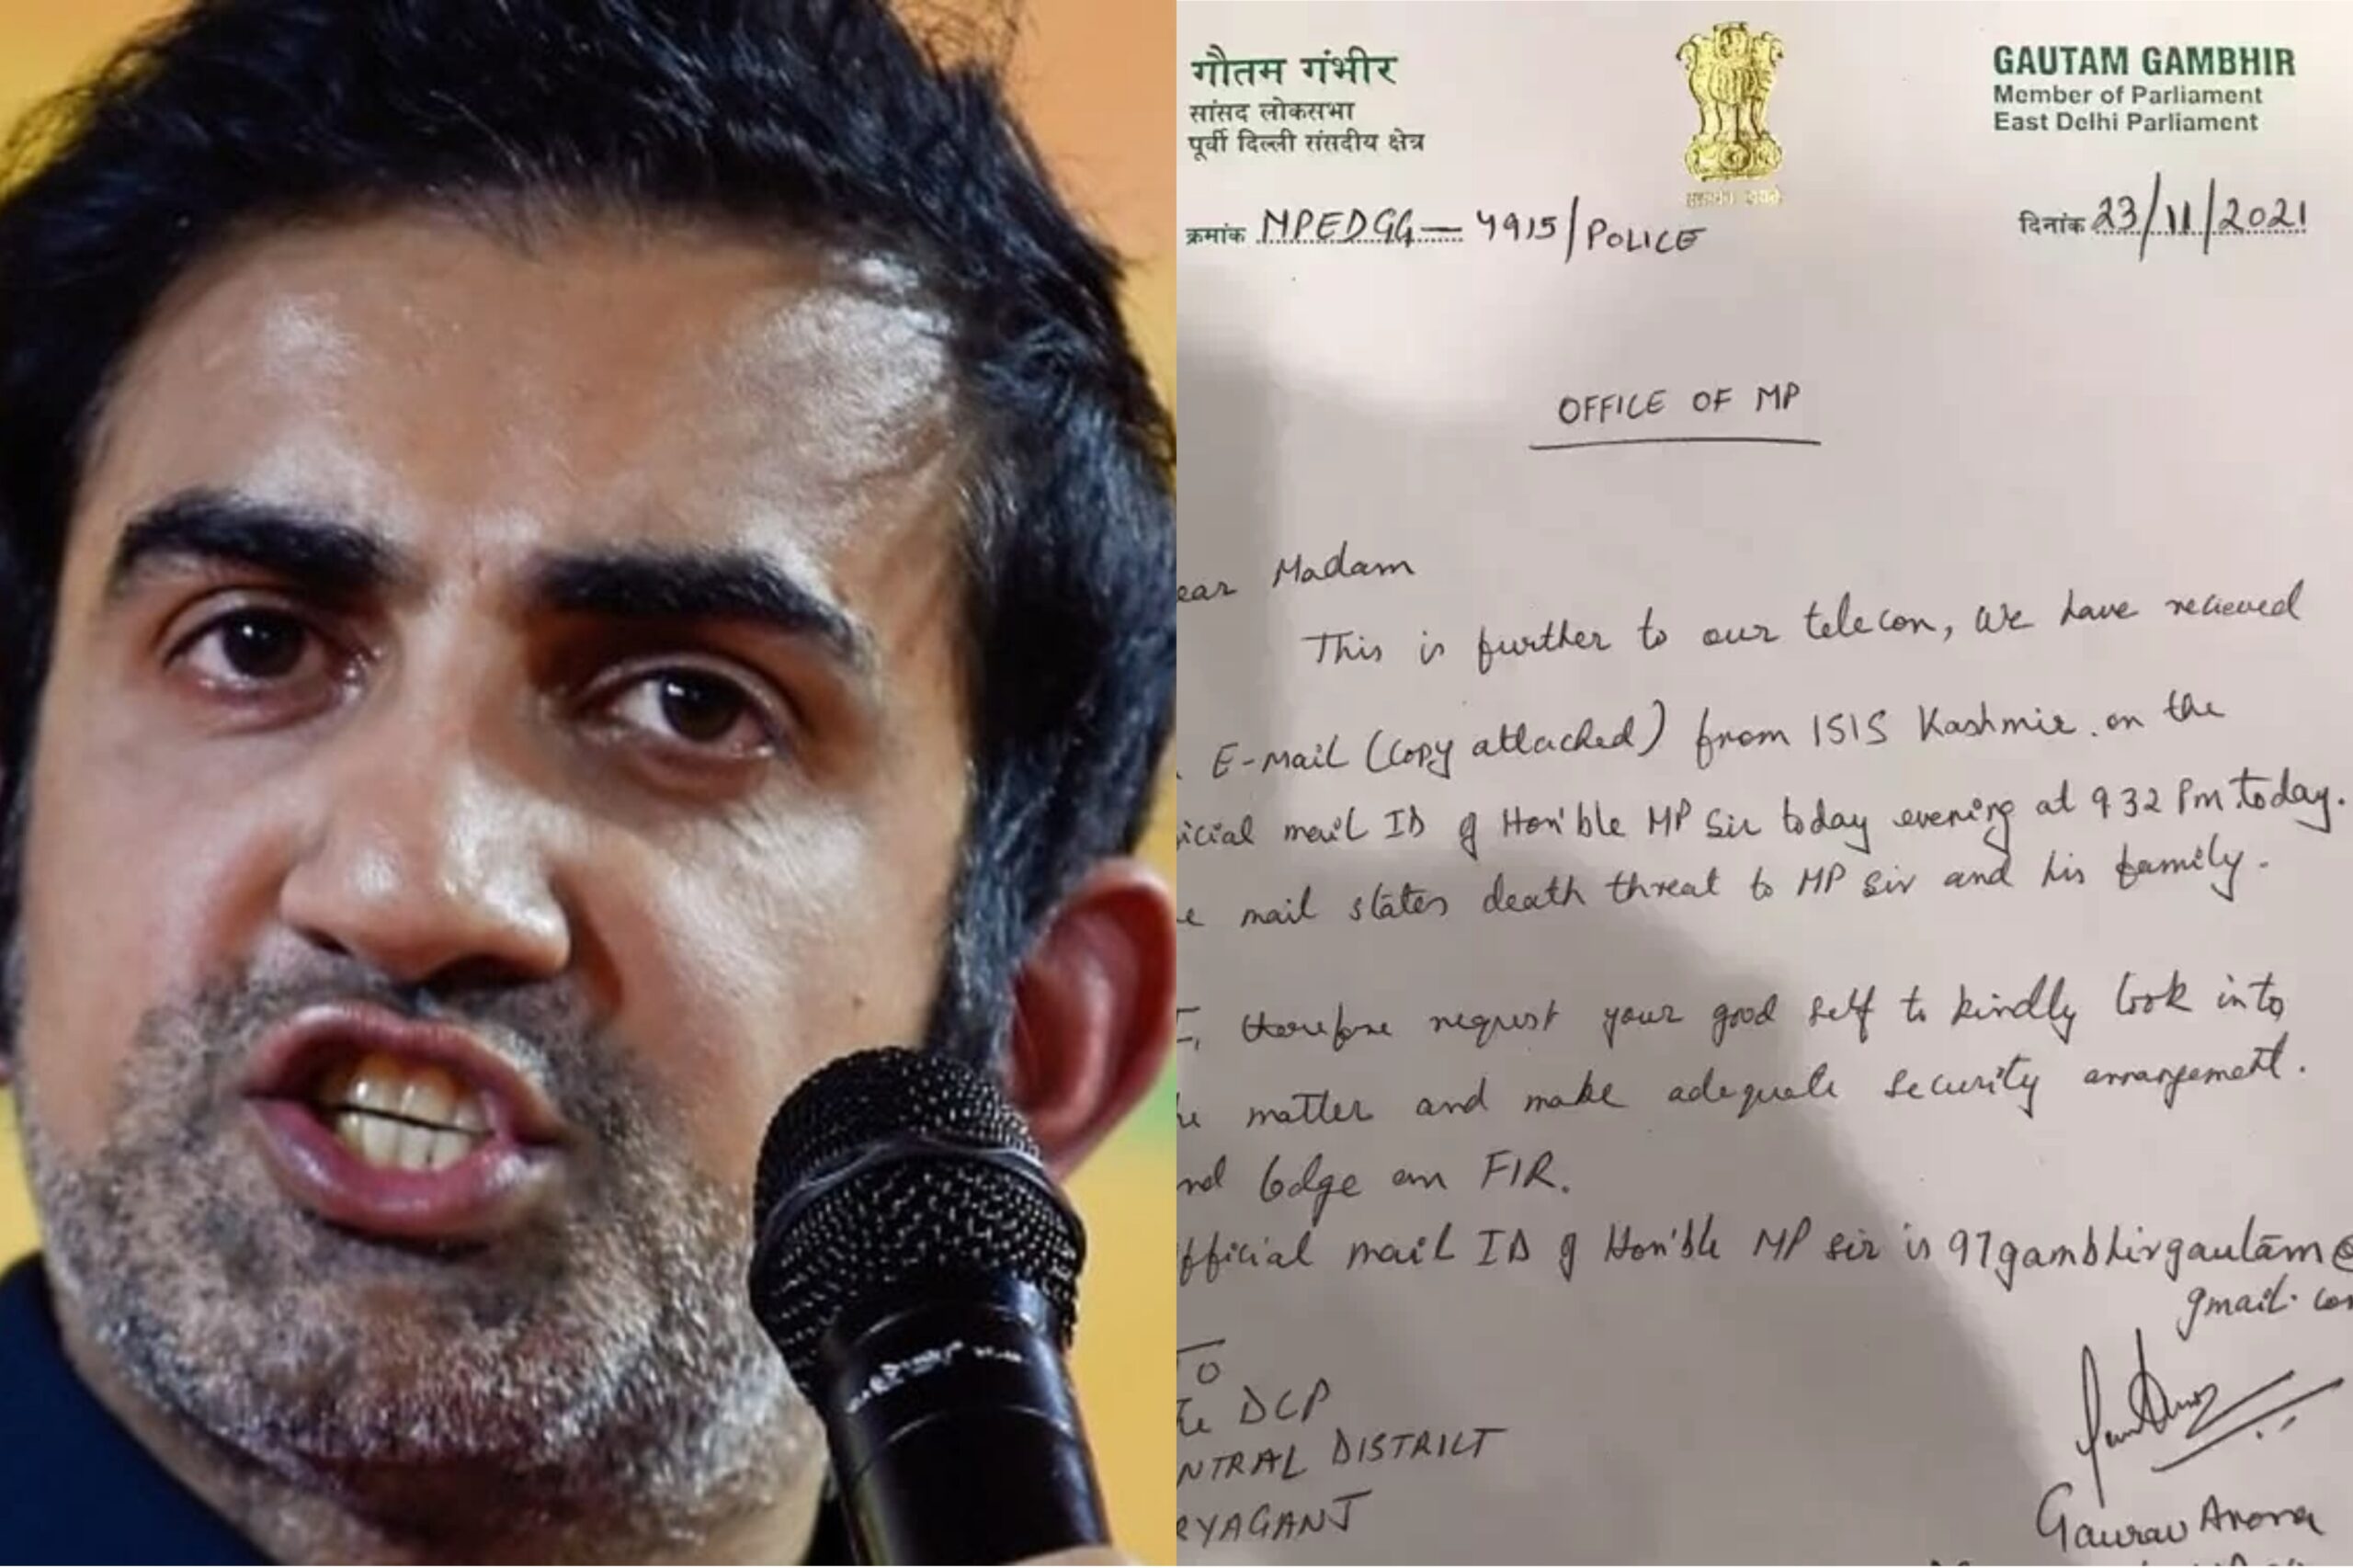 गौतम गंभीर
सांसद लोकसभा
पूर्वी दिल्ली संसदीय क्षेत्र
GAUTAM GAMBHIR
Member of Parliament
East Delhi Parliament
क्रमांक MPEDGG — 4915/POLICE
दिनांक 23/11/2021
OFFICE OF MP
ear Madam
This is further to our telecon, We have recieved
E-mail (copy attached) from ISIS Kashmir on the
icial mail ID of Hon'ble MP Sir today evening at 9 32 Pm today.
e mail states death threat to MP Sir and his family.
I, therefore request your good self to kindly look into
he matter and make adequate security arrangement.
nd lodge an FIR.
fficial mail ID of Hon'ble MP sir is 97gambhirgautam@
gmail.com
To
he DCP
NTRAL DISTRICT
RYAGANJ
Gaurav Arora